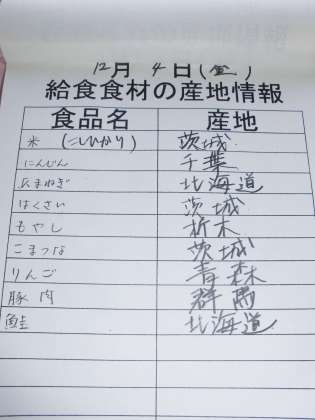 12月 4日(金)
給食食材の産地情報
食品名 産地
米 (こしひかり) 茨城
にんじん 千葉
玉ねぎ 北海道
はくさい 茨城
もやし 栃木
こまつな 茨城
りんご 青森
豚肉 群馬
鮭 北海道